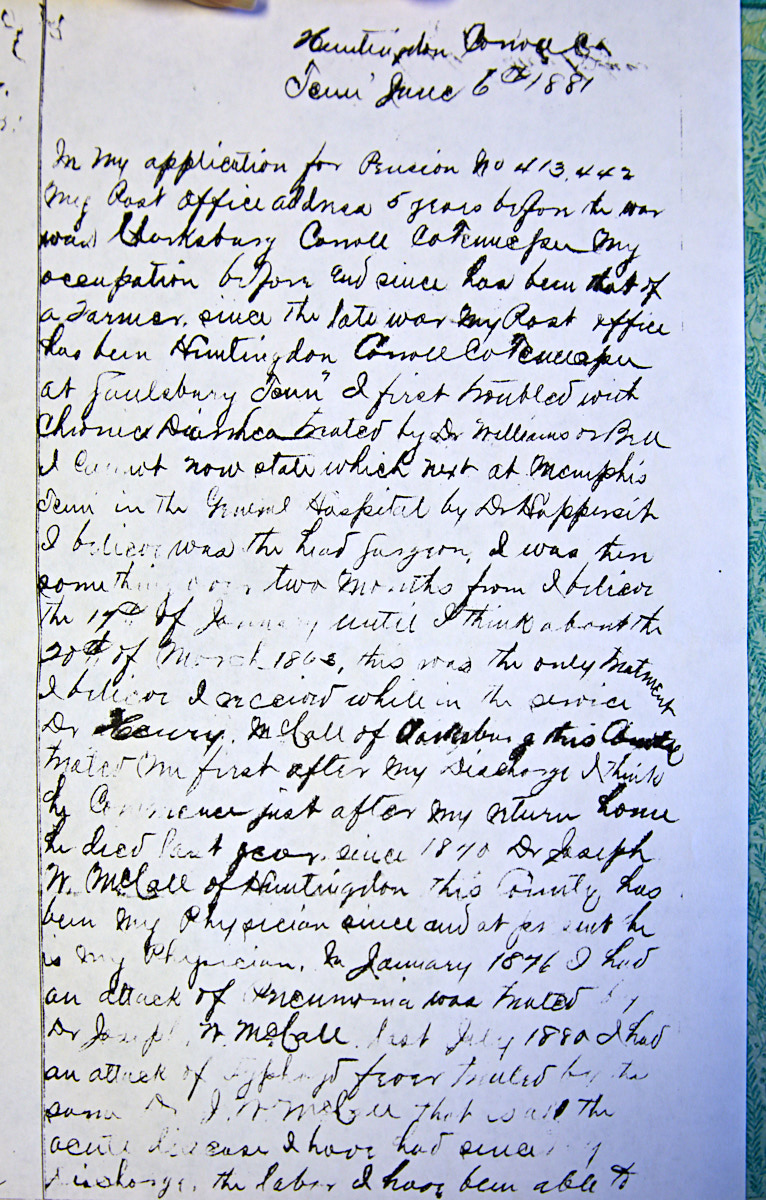 Huntingdon Carroll Co
Tenn June 6th 1881
In my application for Pension No 413,442
My Post office address 5 years before the war
was Clarksburg Carroll Co Tennessee My
occupation before and since has been that of
a Farmer. since the late war my Post office
has been Huntingdon Carroll Co Tennessee
at Saulsbury Tenn" I first troubled with
Chronic Diarrhea treated by Dr Williams or Bell
I cannot now state which next at Memphis
Tenn in the General Hospital by Dr
I believe was the head Surgeon, I was then
something over two Months from I believe
the 17th of January until I think about the
20th of March 1863, this was the only treatment
I believe I received while in the service
Dr Henry. McCall of Clarksburg this County
treated me first after my Discharge I think
he Commence just after my return home
he died last year. since 1870 Dr Joseph
W. McCall of Huntingdon this County has
been my Physician since and at present he
is my Physician. In January 1876 I had
an attack of Pneumonia was treated by
Dr Joseph W. McCall. last July 1880 I had
an attack of Typhoyd fever treated by the
same Dr J. W McCall that is all the
acute disease I have had since my
Discharge. the labor I have been able to